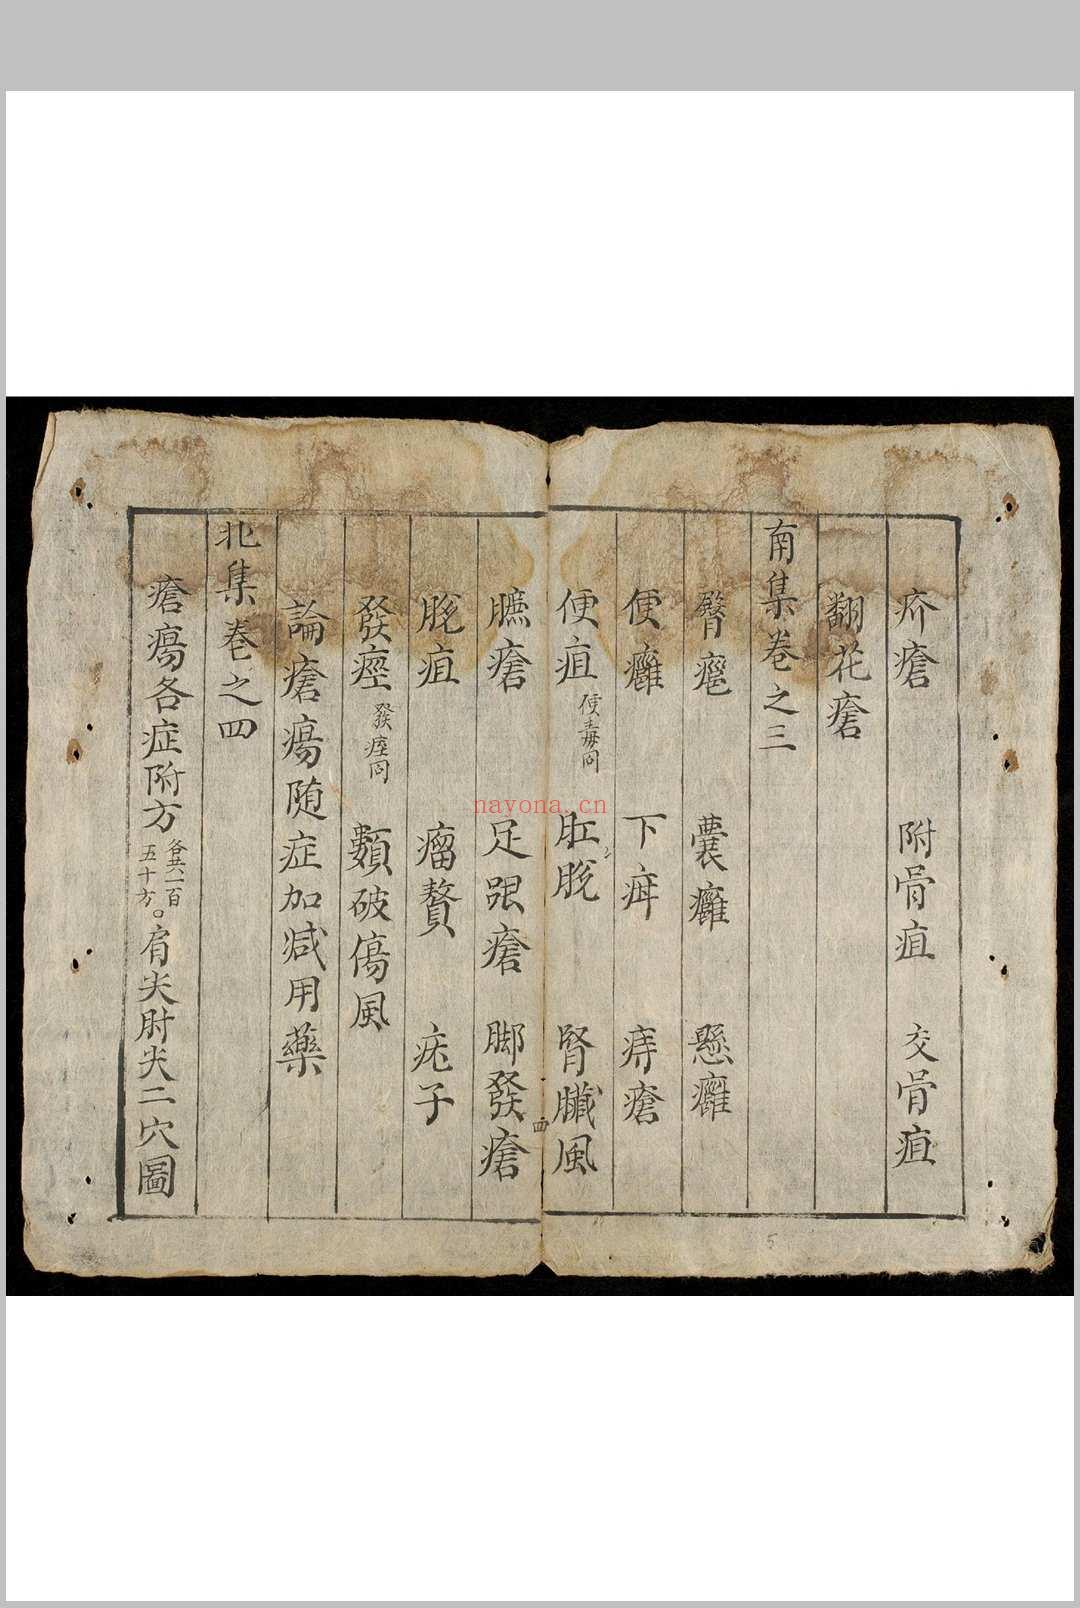 疥瘡 附骨疽 交骨疽
翻花瘡
南集卷之三
臀癰 囊癰 懸癰
便癰 下疳 痔瘡
便疽 便毒同 肛脫 腎臟風
臁瘡 足跟瘡 脚發瘡
脫疽 瘤贅 疣子
發痙 發痓同 類破傷風
論瘡瘍随症加减用藥
北集卷之四
瘡瘍各症附方 各共一百五十方。肩尖肘尖二穴圖
四
5
nayona.cn